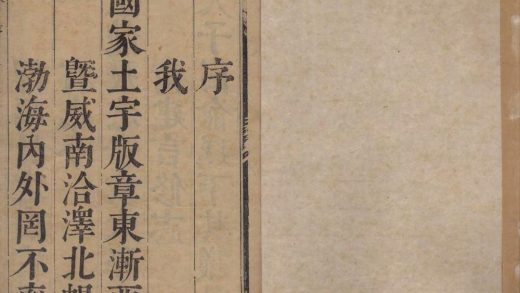 序
我
國家土宇版章東漸
暨威南洽澤北
渤海內外罔不